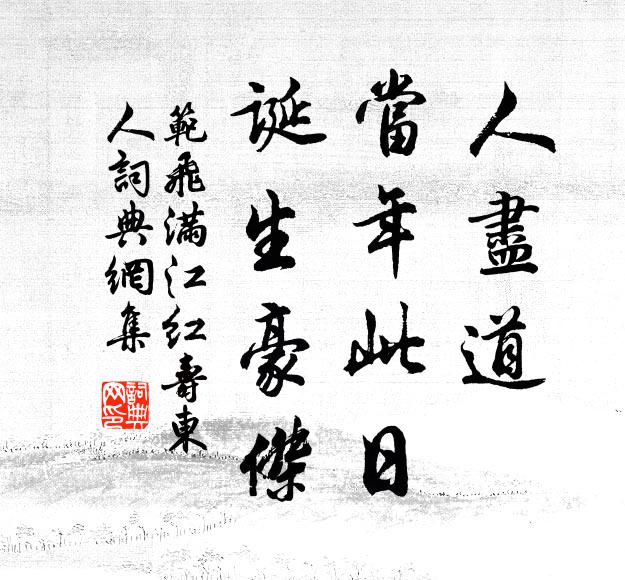 人盡道
當年此日
誕生豪傑
範飛滿江紅壽東
人詞典網集
詞典
网印